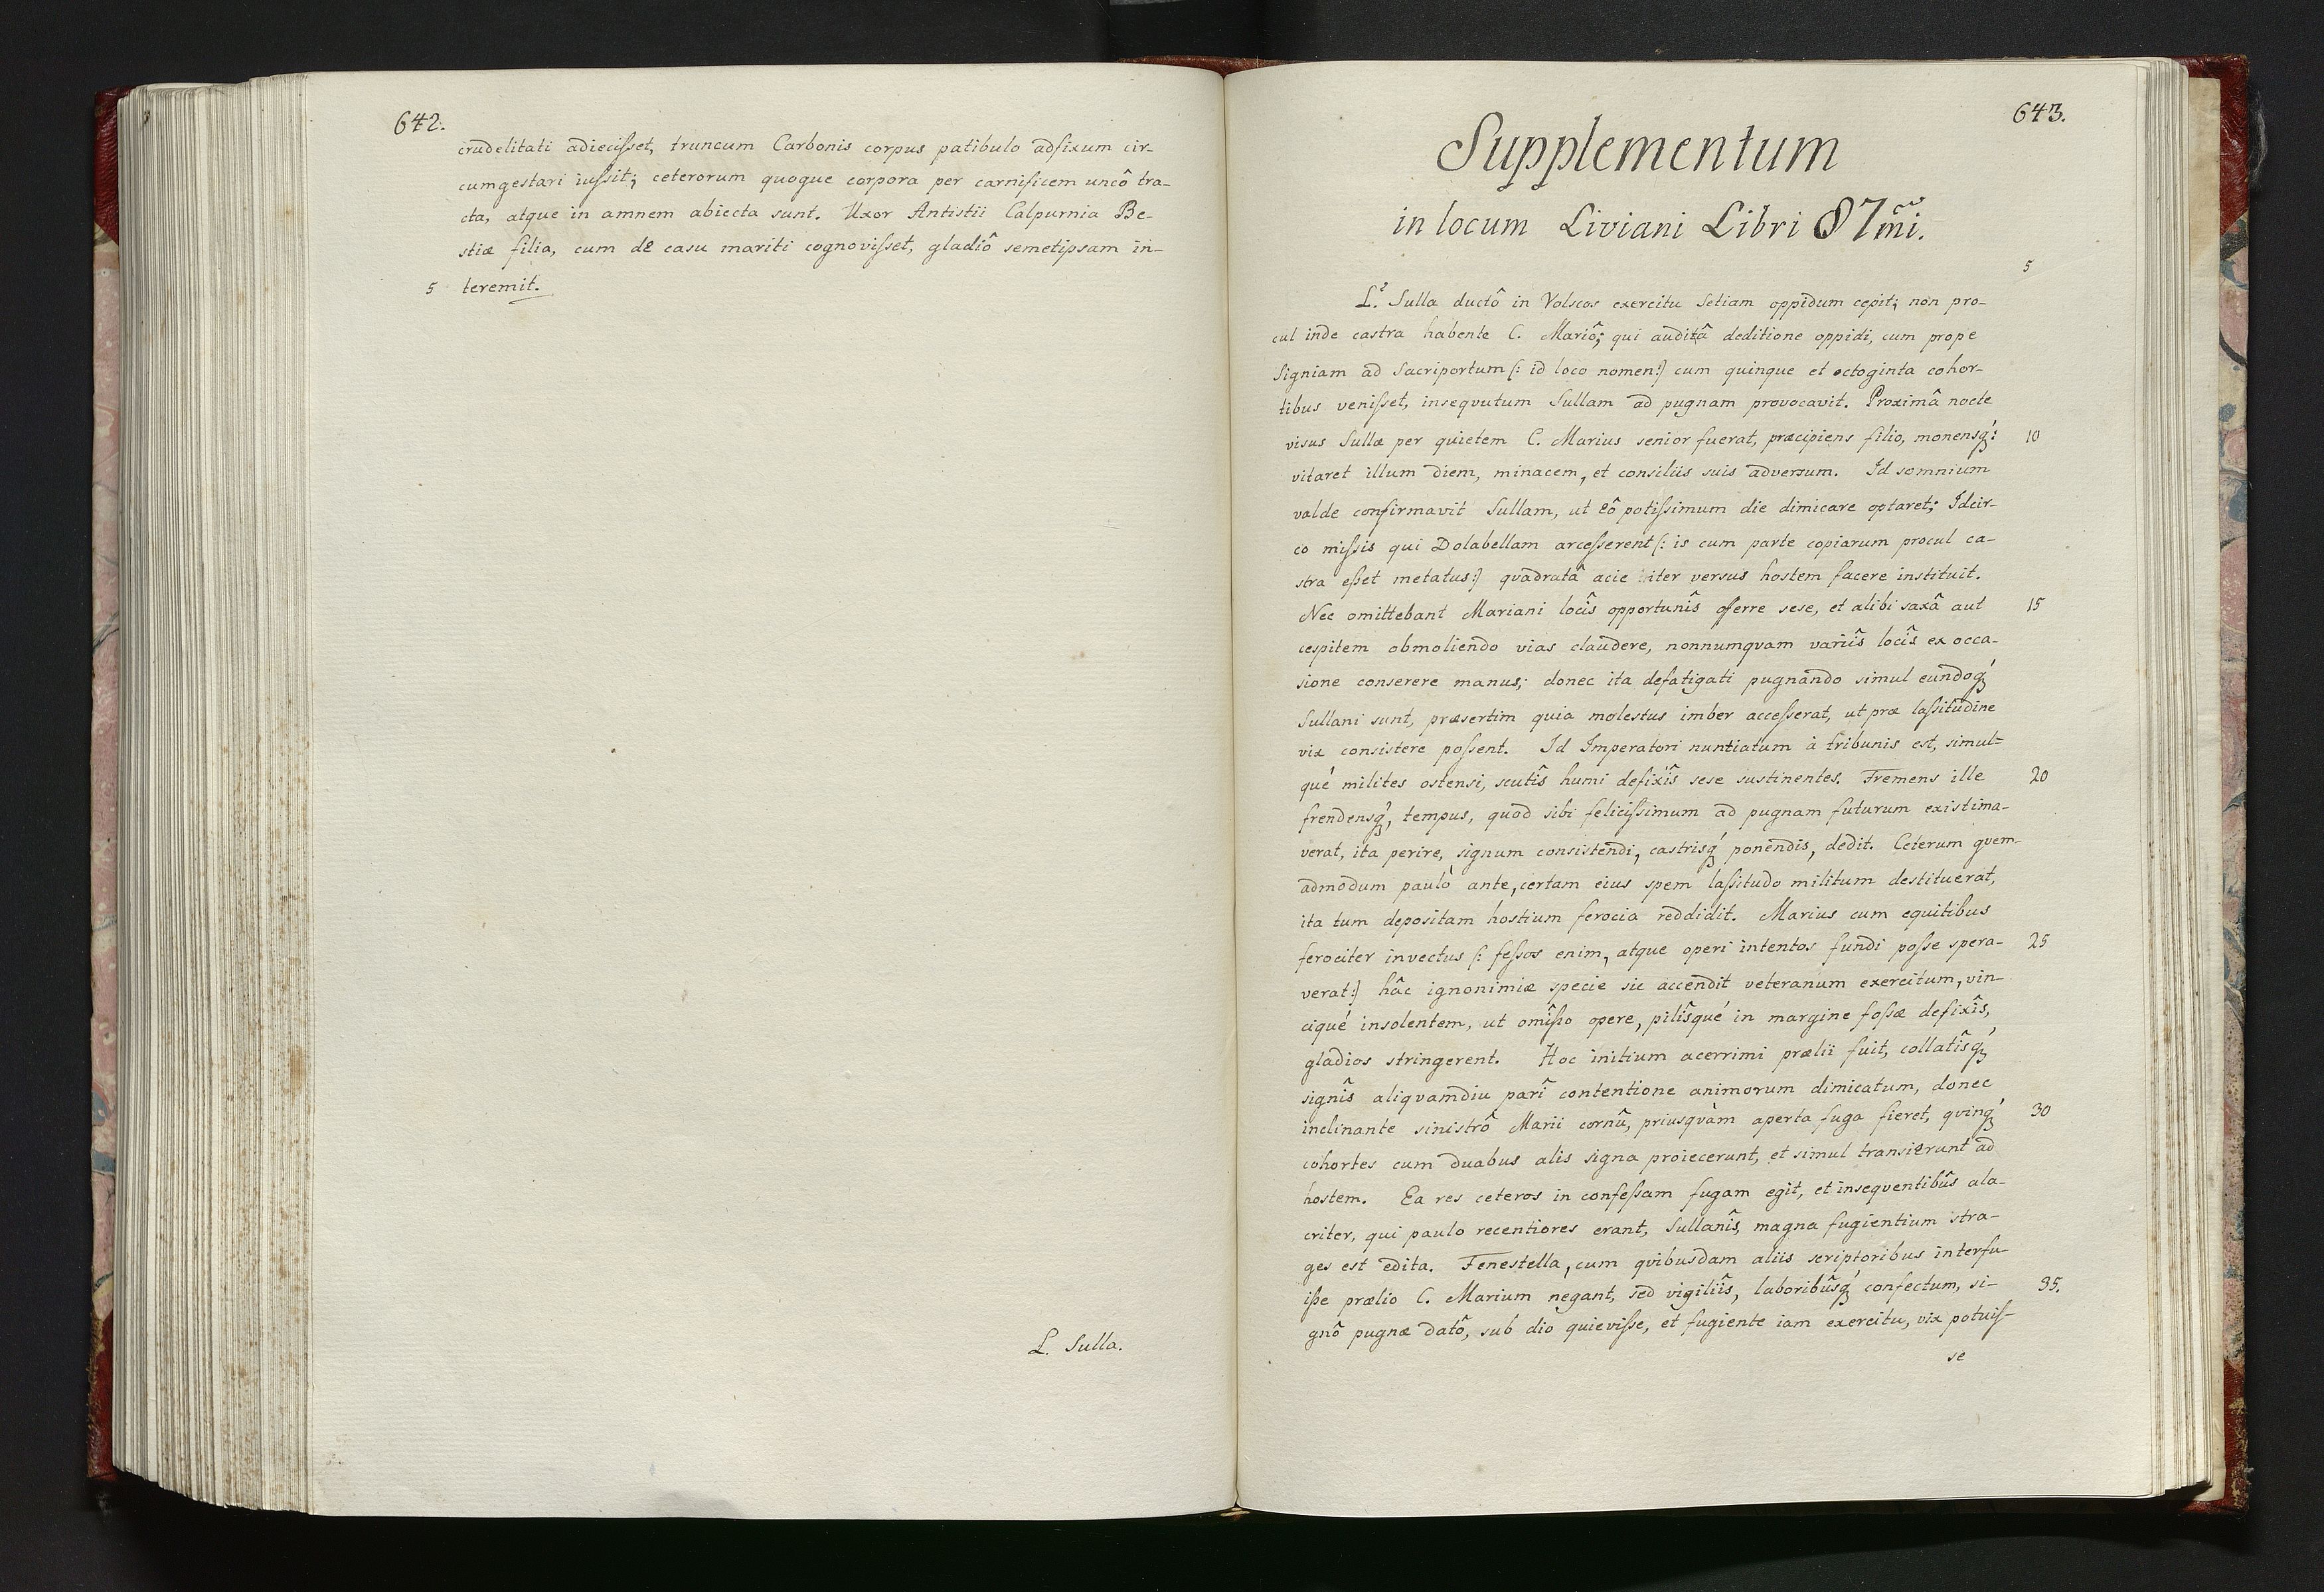 642.
crudelitati adiecisset, truncum Carbonis corpus patibulo adfixum cir-
cumgestari iussit; ceterorum quoque corpora per carnificem uncô tra-
cta, atque in amnem abiecta sunt. Uxor Antistii Calpurnia Be-
stiæ filia, cum de casu mariti cognovisset, gladiô semetipsam in-
5 teremit.
L. Sulla.
643.
Supplementum
in locum Liviani Libri 87mi.
5
L. Sulla ductô in Volscos exercitu Setiam oppidum cepit; non pro-
cul inde castra habente C. Mariô; qui auditâ deditione oppidi, cum prope
Signiam ad Sacriportum (: id loco nomen:) cum quinque et octoginta cohor-
tibus venisset, insequutum Sullam ad pugnam provocavit. Proximâ nocte
visus Sullæ per quietem C. Marius senior fuerat, præcipiens filio, monensq́: 10
vitaret illum diem, minacem, et consiliis suis adversum. Id somnium
valde confirmavit Sullam, ut eô potissimum die dimicare optaret; Idcir-
co missis qui Dolabellam arcesserent (: is cum parte copiarum procul ca-
stra esset metatus:) quadratâ acie iter versus hostem facere instituit.
Nec omittebant Mariani locîs opportunîs offerre sese, et alibi saxâ aut 15
cespitem obmoliendo vias claudere, nonnumquam variîs locîs ex occa-
sione conserere manus; donec ita defatigati pugnando simul eundoq́
Sullani sunt, præsertim quia molestus imber accesserat, ut præ lassitudine
vix consistere possent. Id Imperatori nuntiatum à tribunis est, simul=
qué milites ostensi, scutîs humi defixîs sese sustinentes. Fremens ille 20
frendensq́, tempus, quod sibi felicissimum ad pugnam futurum existima-
verat, ita perire, signum consistendi, castrisq́ ponendis, dedit. Ceterum quem-
admodum paulò ante, certam eius spem lassitudo militum destituerat,
ita tum depositam hostium ferocia reddidit. Marius cum equitibus
ferociter invectus (: fessos enim, atque operi intentos fundi posse spera- 25
verat:) hâc ignonimiæ specie sic accendit veteranum exercitum, vin-
ciqué insolentem, ut omîsso opere, pilîsqué in margine fossæ defixîs,
gladios stringerent. Hoc initium acerrimi prælii fuit, collatîsq́
signîs aliquamdiu parî contentione animorum dimicatum, donec
inclinante sinistrô Marii cornû, priusquàm aperta fuga fieret, quinq́ 30
cohortes cum duabus alis signa proiecerunt, et simul transierunt ad
hostem. Ea res ceteros in confessam fugam egit, et insequentibûs ala-
criter, qui paulo recentiores erant, Sullanîs, magna fugientium stra-
ges est edita. Fenestella, cum quibusdam aliis scriptoribus interfu-
isse prælio C. Marium negant, sed vigiliîs, laboribûsq́ confectum, si- 35.
gnô pugnæ datô, sub dio quievisse, et fugiente iam exercitu, vix potuis-
se